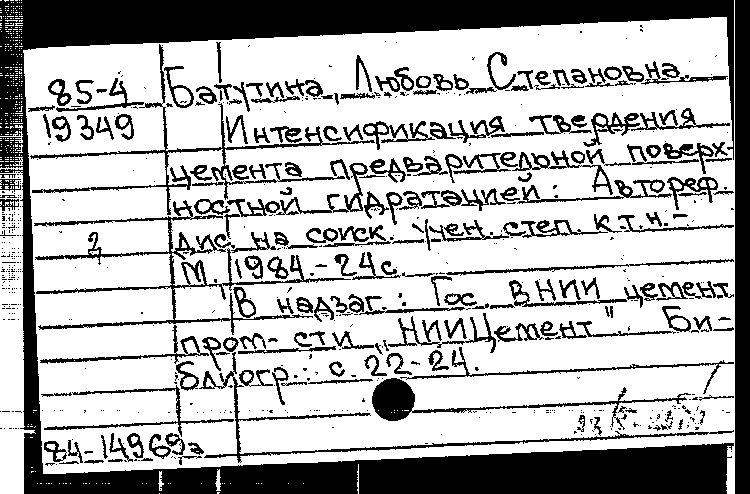 85-4 Батутина, Любовь Степановна.
19349 Интенсификация твердения
цемента предварительной поверх-
ностной гидратацией: Автореф.
дис. на соиск. учен. степ. к.т.н.-
М. 1984.-24с.
"В надзаг.: Гос. ВНИИ цемент
пром-сти „НИИЦемент". Би-
блиогр.: с. 22-24.
84-14969а